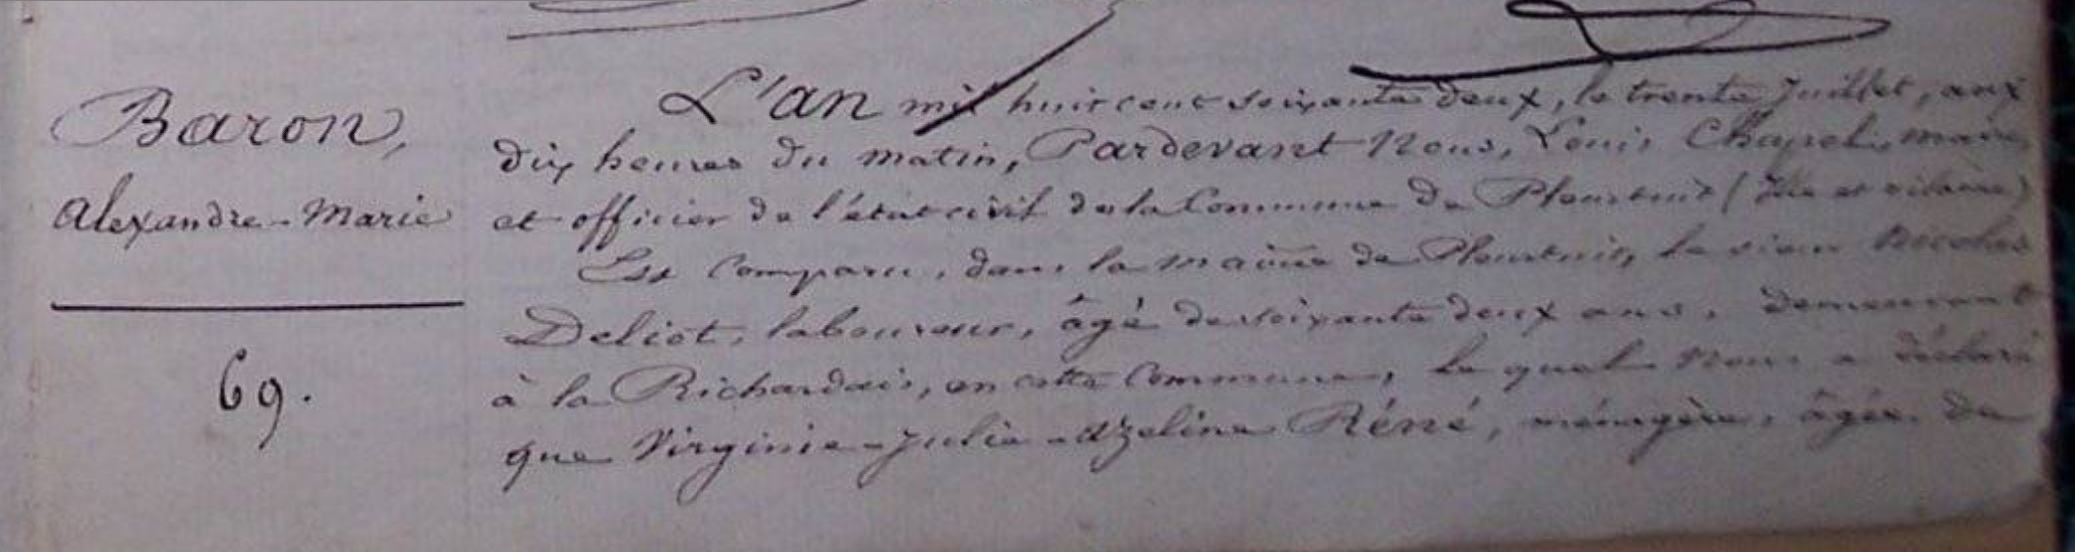 Baron,
Alexandre-Marie
69.
L'an mil huit cent soixante deux, le trente Juillet, aux
dix heures du matin, Pardevant Nous, Louis Chapel, maire
et officier de l'état civil de la Commune de Pleurtuit (Ille et vilaine)
Est Comparu, dans la mairie de Pleurtuit, le sieur Nicolas
Deliot, laboureur, âgé de soixante deux ans, demeurant
à la Richardais, en cette Commune, le quel Nous a déclaré
que Virginie-Julie-Azeline Réné, ménagère, âgée de